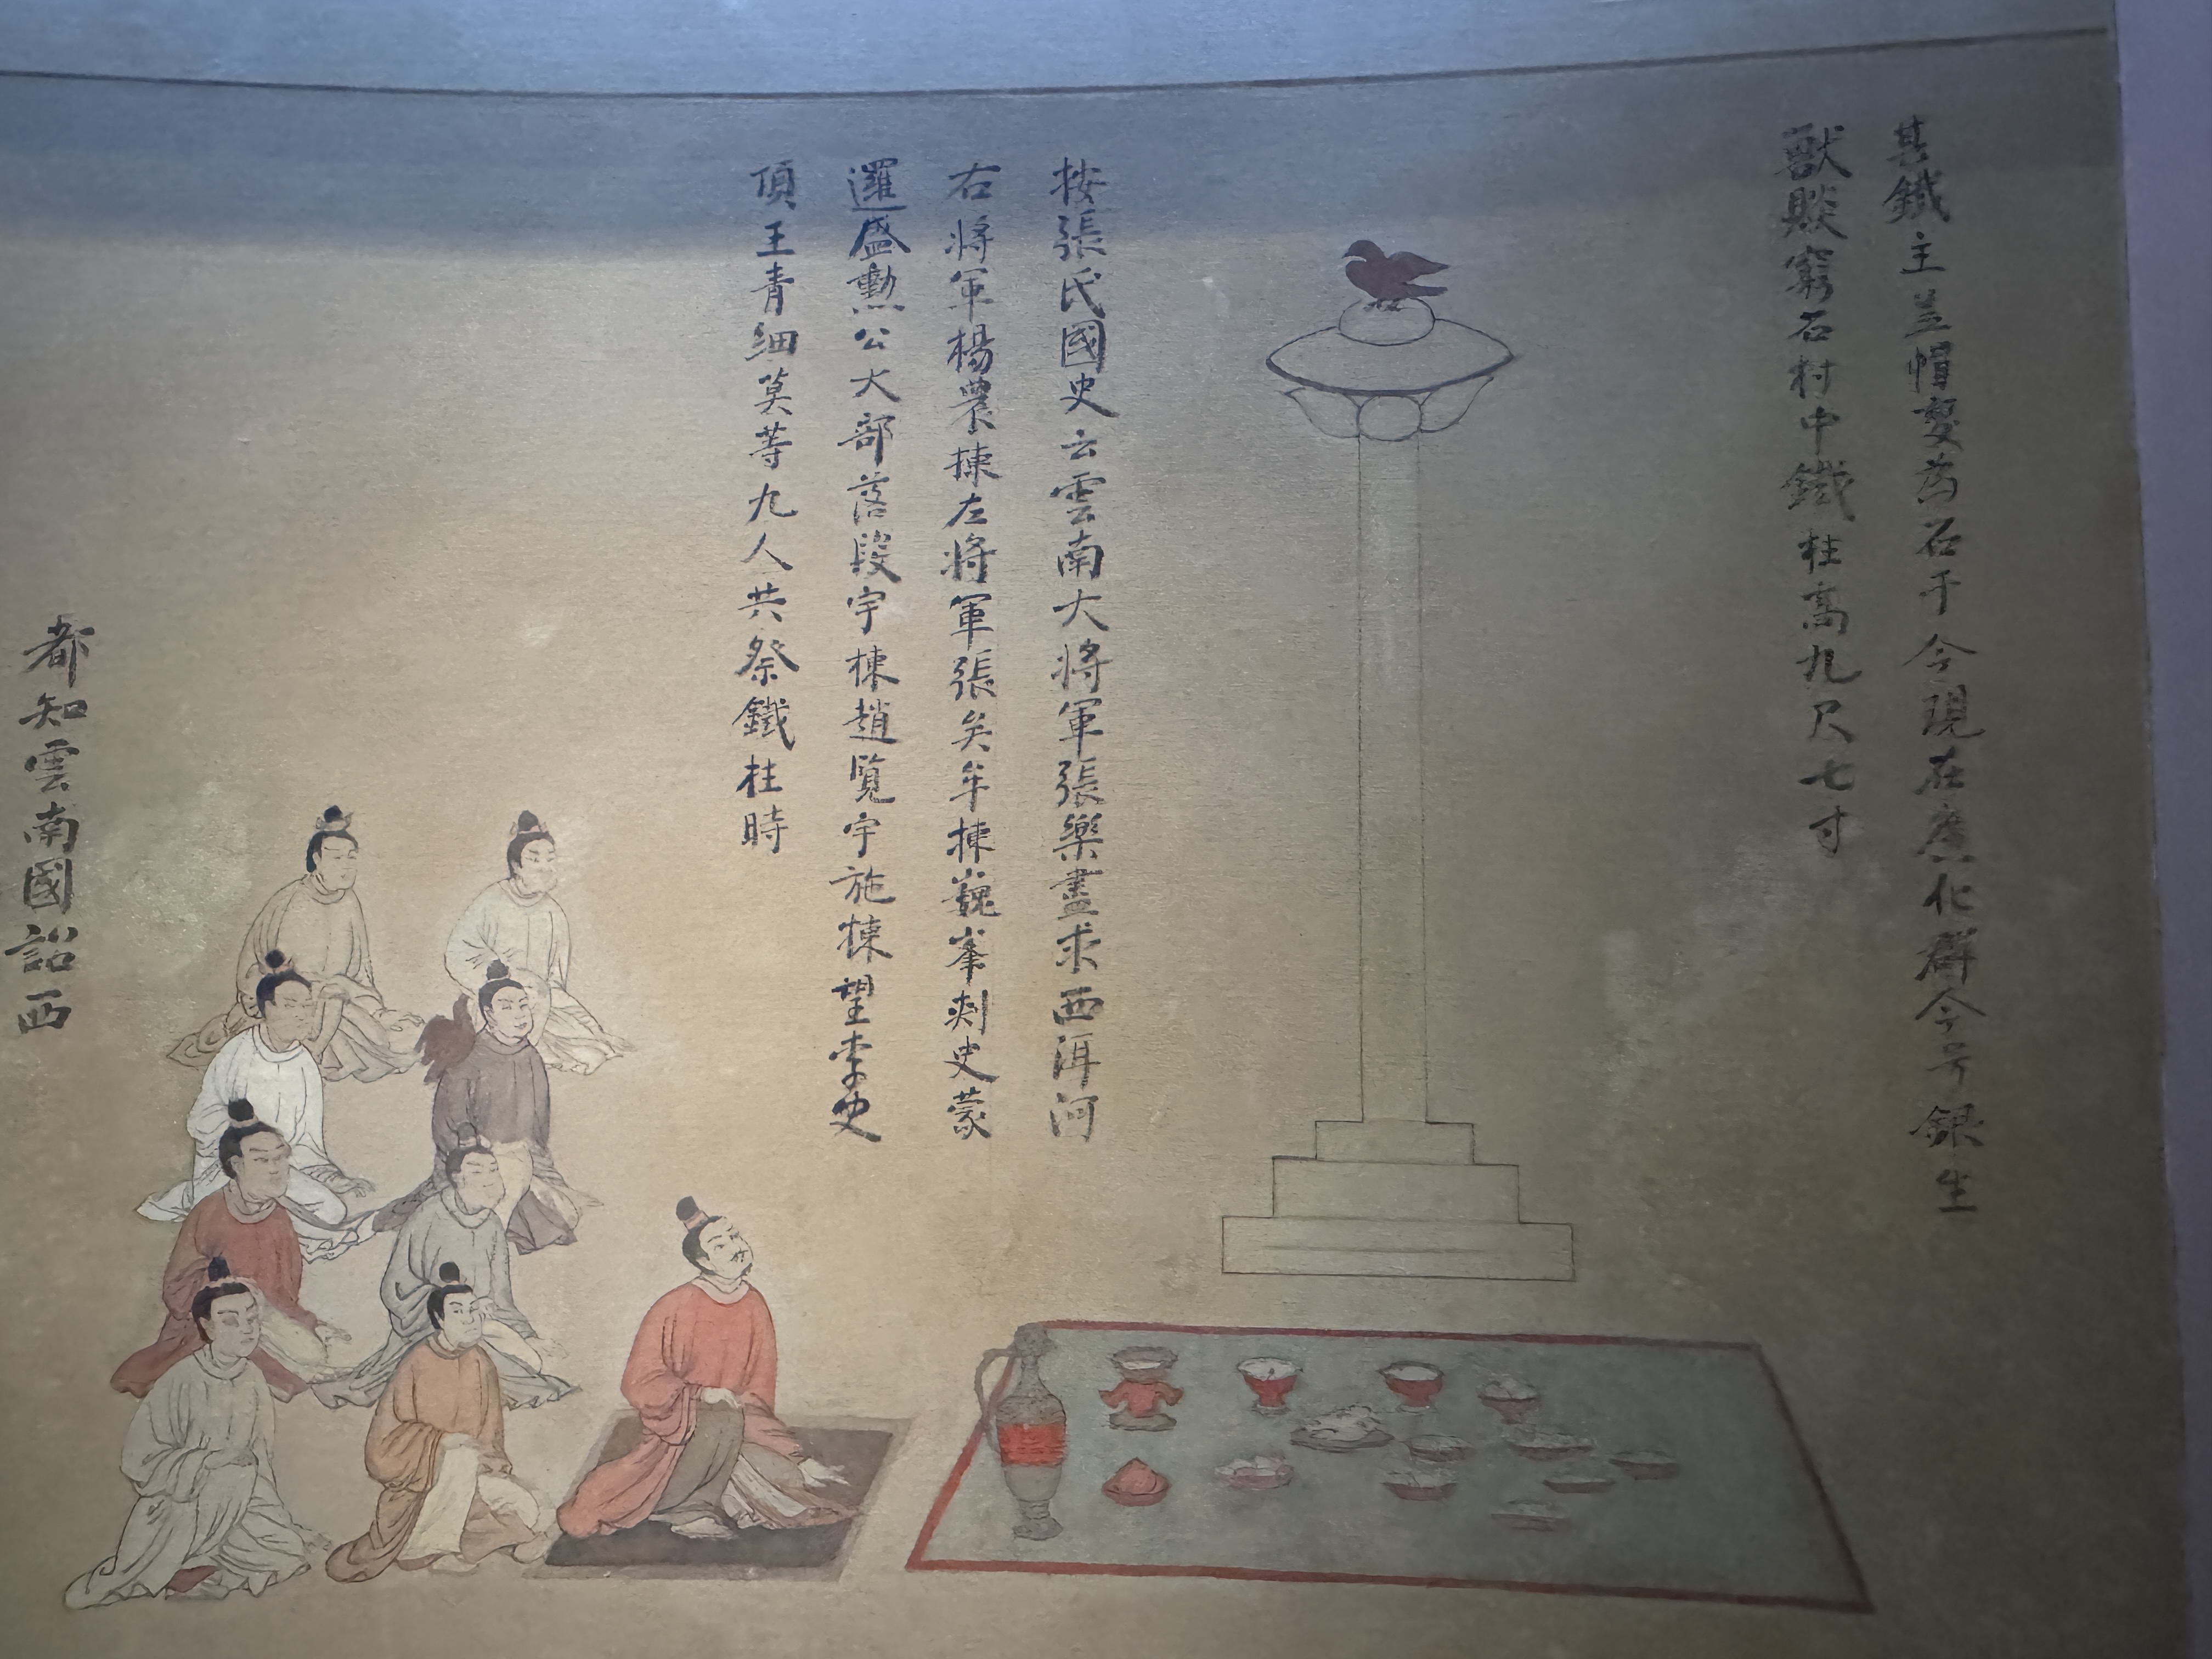 其鐵主盖帽變為石于今現在廃化群今号銀生
獸賧窮石村中鐵柱高九尺七寸
按張氏國史云雲南大將軍張樂盡求西洱河
右將軍楊農揀左將軍張矣牟揀巍峯刾史蒙
邏盛勳公大部落段宇棟趙覽宇施棟望李史
頂王青細莫等九人共祭鐵柱時
都知雲南國詔西